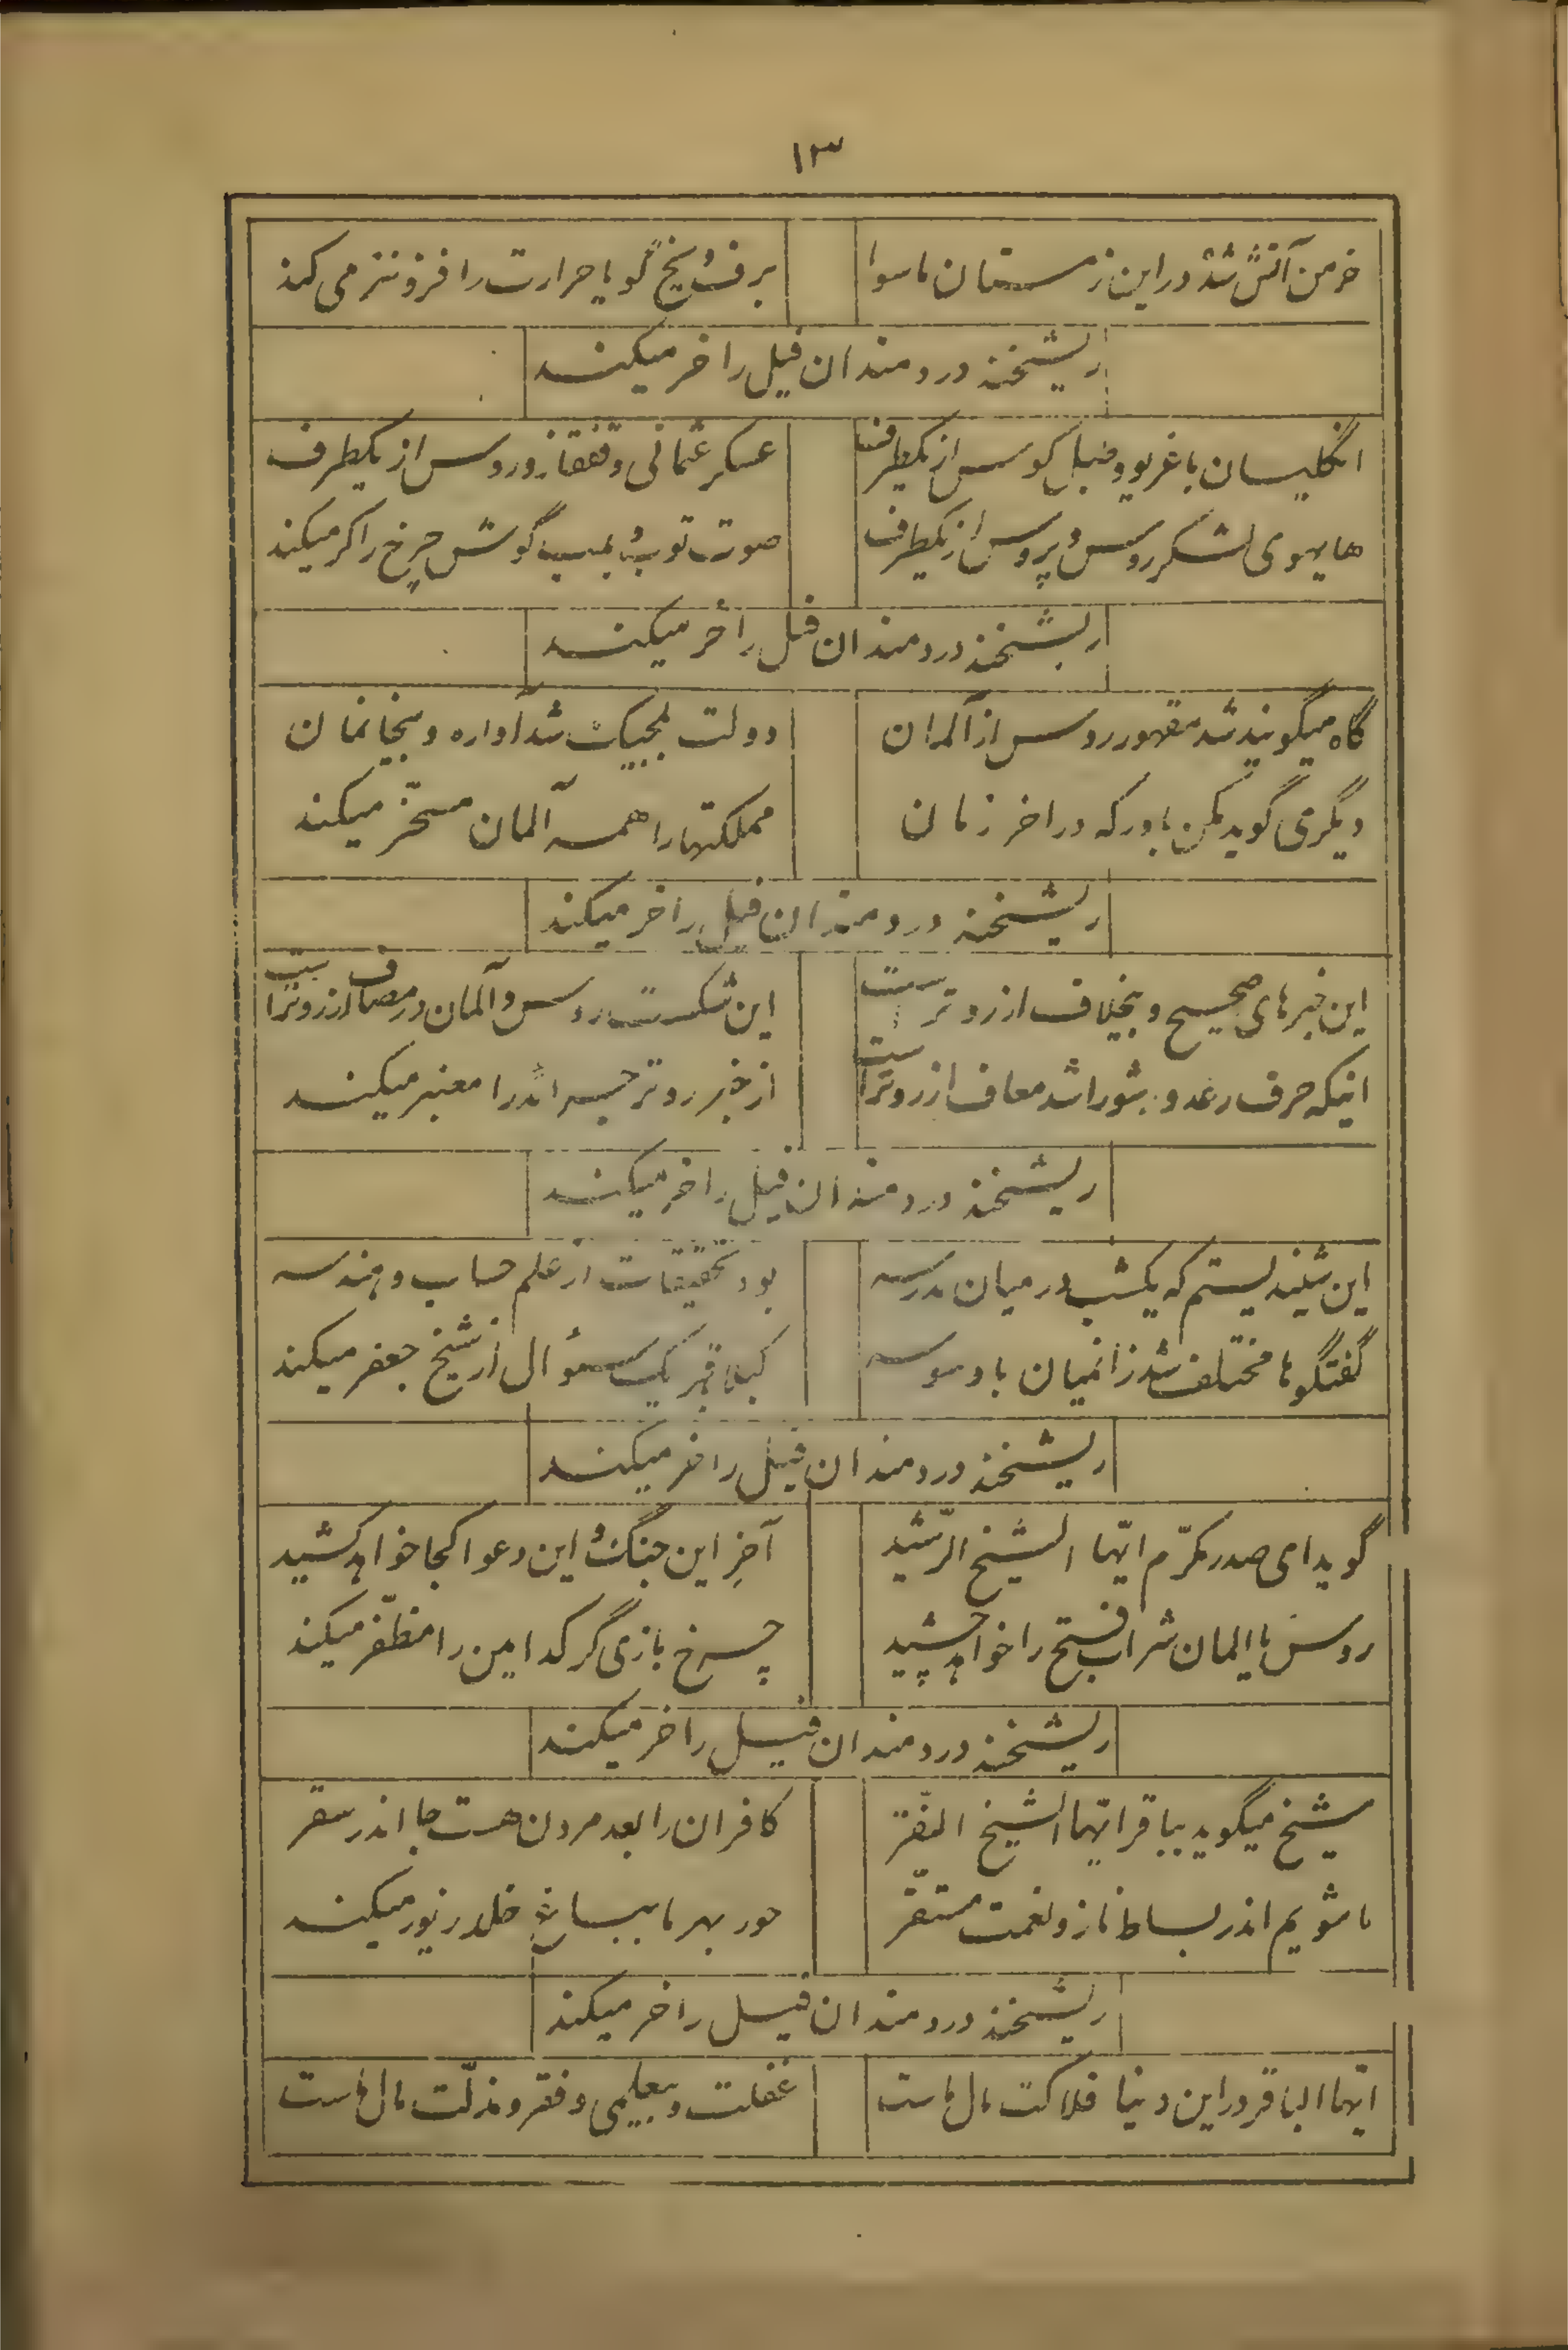 ۱۳
خرمن آتش شده در این زمستان ماسوا
برف و یخ گویا حرارت را فزونتر می کند
ریشخند دردمندان فیل را خر میکند
انگلیسان با غریو و طبل کوس از یکطرف
عسکر عثمانی و قفقاز و روس از یکطرف
هایهوی لشکر روس و پروس از یکطرف
صوت توپ و بمب گوش چرخ را کر میکند
ریشخند دردمندان فیل را خر میکند
گاه میگویند شد مقهور روس از آلمان
دولت بلجیک شد آواره و بیخانمان
دیگری گوید مکن باور که در اخر زمان
مملکتها را همه آلمان مسخّر میکند
ریشخند دردمندان فیل را خر میکند
این خبرهای صحیح و بیخلاف از روترست
این شکست روس و آلمان در مصاف از روتراست
اینکه حرف رعد و شد معاف از روتراست
از خبر روتر را معتبر میکند
ریشخند دردمندان فیل را خر میکند
این شنیدیستم که یکشب در میان مدرسه
بود تحقیقات از علم حساب و هندسه
گفتگوها مختلف شد زانمیان با وسوسه
کبلا قر یک سئوال از شیخ جعفر میکند
ریشخند دردمندان فیل را خر میکند
گوید ای صدر مکرّم ایّها الشیخ الرّشید
آخرِ این جنگ و این دعوا کجا خواهد کشید
روس یا المان شراب فتح را خواهد چشید
چرخ بازی گر کدامین را مظفّر میکند
ریشخند دردمندان فیل را خر میکند
شیخ میگوید بباقر ایّها الشیخ النفر
کافران را بعد مردن هست جا اندر سقر
ما شویم اندر بساط ناز و نعمت مستقّر
حور بهر ما خلد زیور میکند
ریشخند دردمندان فیل را خر میکند
ایّها الباقر در این دنیا فلاکت مال ماست
غفلت و بیعلمی و فقر و مذلّت مال ماست